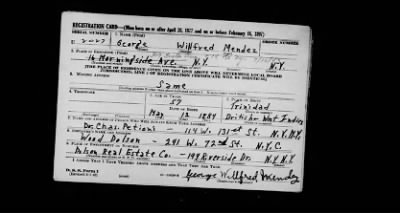 REGISTRATION CARD—(Men born on or after April 28, 1877 and on or before February 16, 1897)
SERIAL NUMBER 1. NAME (Print) ORDER NUMBER
U 2027 George Wilfred Mendez
2. PLACE OF RESIDENCE (Print)
16 Morningside Ave. N.Y. N.Y.
[THE PLACE OF RESIDENCE GIVEN ON THE LINE ABOVE WILL DETERMINE LOCAL BOARD
JURISDICTION; LINE 2 OF REGISTRATION CERTIFICATE WILL BE IDENTICAL]
3. MAILING ADDRESS
Same
4. TELEPHONE 5. AGE IN YEARS 6. PLACE OF BIRTH
57 Trinidad
DATE OF BIRTH
May 13 1884 British West Indies
7. NAME AND ADDRESS OF PERSON WHO WILL ALWAYS KNOW YOUR ADDRESS
Dr. Chas. Petioni - 114 W. 131st St. N.Y. N.Y.
8. EMPLOYER'S NAME AND ADDRESS
Wood Dolson - 241 W. 72nd St. N.Y.C.
9. PLACE OF EMPLOYMENT OR BUSINESS
Dolson Real Estate Co. - Riverside Dr. N.Y. N.Y.
I AFFIRM THAT I HAVE VERIFIED ABOVE ANSWERS AND THAT THEY ARE TRUE.
D. S. S. Form 1
George Wilfred Mendez